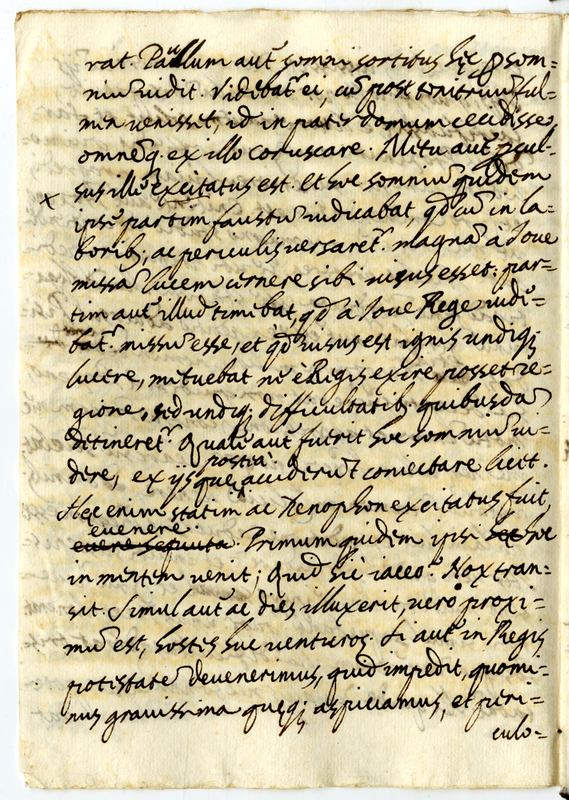 rat. Paullum aut somni sortitus hęc p som=
niũ uidit. Videbatr ei, cũ post tonitruũ ful=
men uenisset, id in pater domum cecidisse,
omneq. ex illo coruscare. Metu aut pcul=
sus illo excitatus est. Et hoc somniũ quidem
x ipse partim faustũ iudicabat, qđ cũ in la=
borib, ac periculis uersaretr. magnã à Ioue
missã lucem cernere sibi uisus esset: par=
tim aut illud timebat, qđ à Ioue Rege uide=
batr. missũ esse, et qđ uisus est ignis undiq;
lucere, metuebat ne è Regis exire posset re=
gione, sed undiq; difficultatib. quibusdã
detineretr. Quale aut fuerit hoc somniũ ui=
dere, ex ijs que postea acciderũt coniectare licet.
Hęc enim statim ac Xenophon excitatus fuit,
euenere. Primum quidem ipsi hoc
in mentem uenit; Quid hìc iaceo? Nox tran=
sit. Simul aut ac dies illuxerit, uero proxi=
mũ est, hostes huc venturos. Si aut in Regis
potestatẽ deuenerimus, quid impedit, quomi=
nus grauissima quęq; aspiciamus, et peri=
culo=